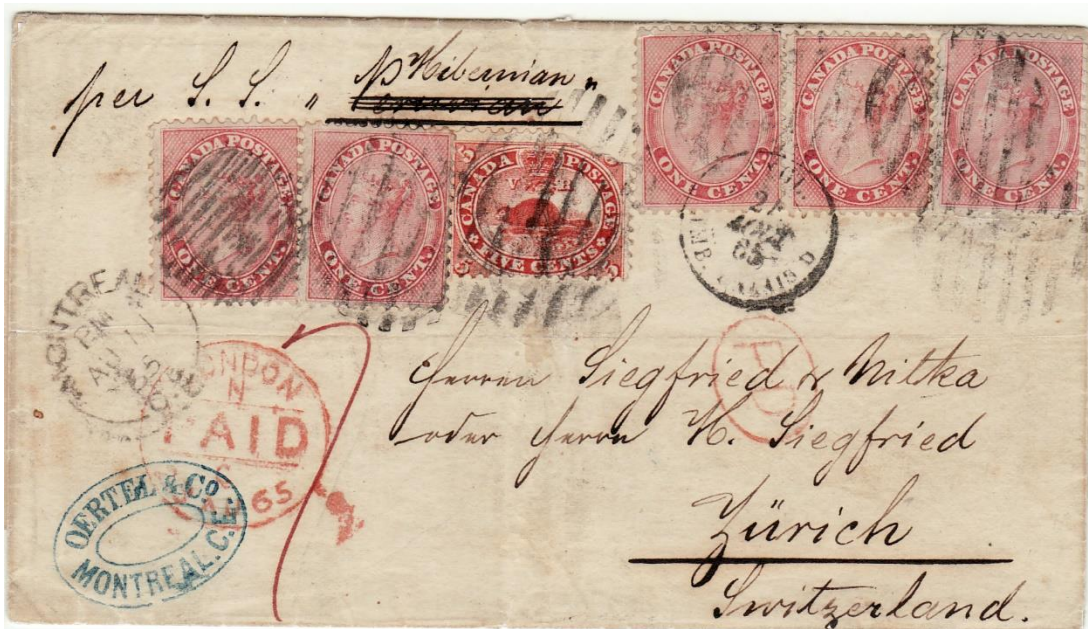 per S. S. " Hibernian "
CANADA POSTAGE
ONE CENT.
CANADA POSTAGE
ONE CENT.
CANADA POSTAGE
V R
FIVE CENTS
5 5
CANADA POSTAGE
ONE CENT.
CANADA POSTAGE
ONE CENT.
CANADA POSTAGE
ONE CENT.
21
AOUT
65
CALAIS D
MONTREAL
AU 11
LONDON
N
PAID
65
PD
OERTEL & Co
MONTREAL. C. E.
Herren Siegfried & Nittka
oder Herrn H. Siegfried
Zürich
Switzerland.